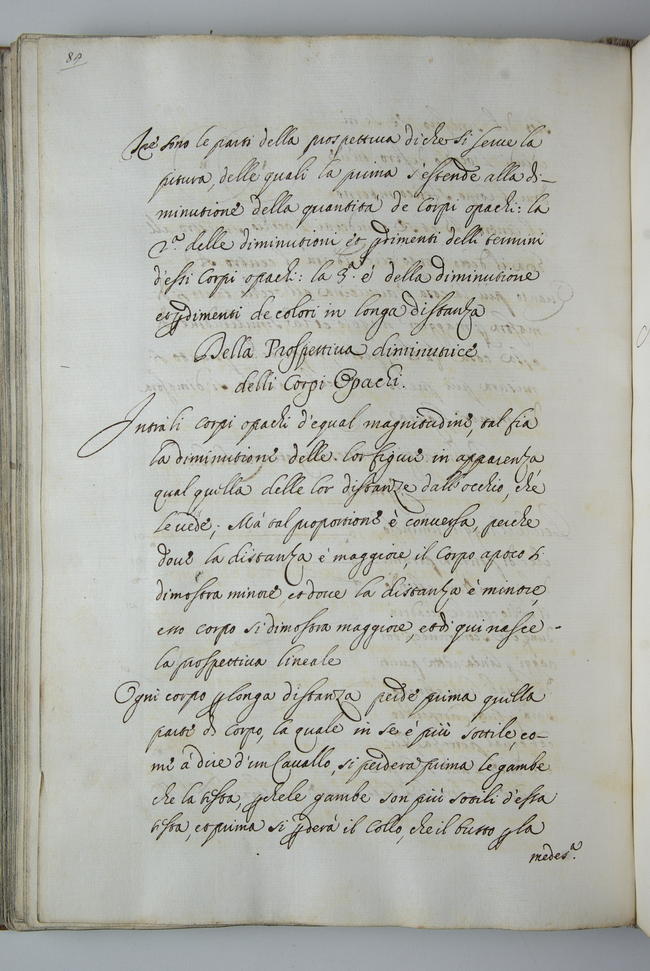 89
Tre sono le parti della prospettiva di che si serue la
pitura, delle quali la prima s'estende alla di-
minutione della quantità de Corpi opachi: la
2.ª delle diminutioni et pdimenti delli termini
d'essi Corpi opachi: la 3.ª é della diminutione
et pdimenti de colori in longa distanza
Della Prospettiua diminutrice
delli Corpi Opachi.
Intra li corpi opachi d'equal magnitudine, tal fia
la diminutione delle lor figure in apparenza
qual quella delle lor distanze dall'occhio, che
le uede; Mà tal proportione è conuersa, perche
doue la distanza è maggiore, il Corpo opaco si
dimostra minore, et doue la distanza è minore,
esso corpo si dimostra maggiore, et di qui nasce
la prospettiua lineale
Ogni corpo p longa distanza perde prima quella
parte di corpo, la quale in se è più sottile, co-
me à dire d'un Cauallo, si perderà prima le gambe
che la testa, p che le gambe son più sottili d'essa
testa, et prima si pderà il Collo, che il busto p la
medes.ª